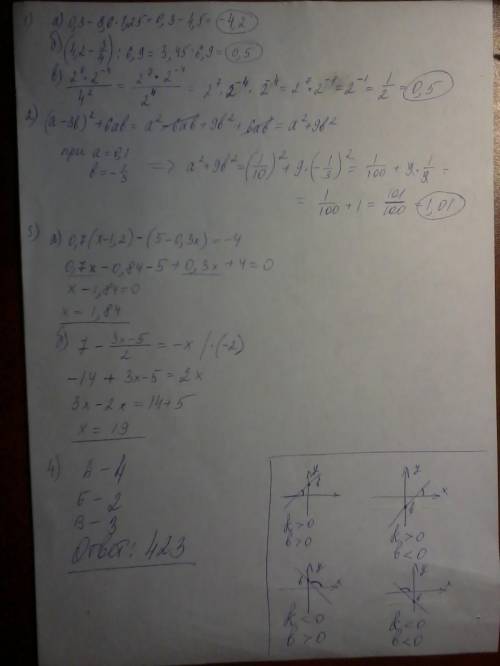 1) а) 0,3 - 3,6 · 1,25 = 0,3 - 4,5 = -4,2
б) (4,2 - 3/4) : 6,9 = 3,45 : 6,9 = 0,5
в) 2⁷·2⁻⁴ / 4² = 2⁷·2⁻⁴ / 2⁴ = 2⁷·2⁻⁴·2⁻⁴ = 2⁷·2⁻⁸ = 2⁻¹ = 1/2 = 0,5
2) (a-3b)² + 6ab = a² - 6ab + 9b² + 6ab = a² + 9b²
при a = 0,1
b = -1/3 => a² + 9b² = (1/10)² + 9·(-1/3)² = 1/100 + 9·1/9 =
= 1/100 + 1 = 101/100 = 1,01
3) а) 0,7(x-1,2) - (5-0,3x) = -4
0,7x - 0,84 - 5 + 0,3x + 4 = 0
x - 1,84 = 0
x = 1,84
б) 7 - 3x-5/2 = -x /·(-2)
-14 + 3x - 5 = 2x
3x - 2x = 14 + 5
x = 19
4) А - 4
Б - 2
В - 3
Ответ: 423
y
b
k > 0
b > 0
y
x
b
k > 0
b < 0
b
y
x
k < 0
b > 0
y
x
b
k < 0
b < 0